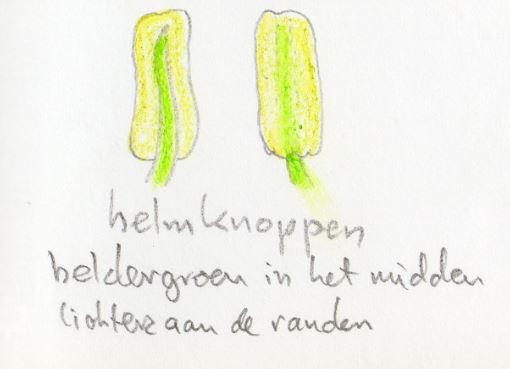 helmknoppen
heldergroen in het midden
lichtere aan de randen